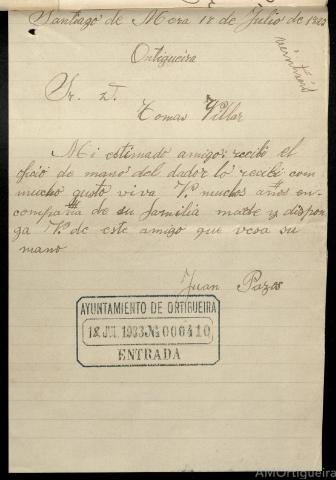 Santiago de Mera 18 de Julio de 1933
Ortigueira
Sr. D.
Tomas Villar
Mi estimado amigo: recibo el
oficio de mano del dador lo recibí con
mucho gusto viva V. muchos años en
compañia de su familia mande y dispon
ga V. de este amigo que vesa su
mano
Juan Pazos
AYUNTAMIENTO DE ORTIGUEIRA
18 JUL 1933 № 000410
ENTRADA
AMOrtigueira